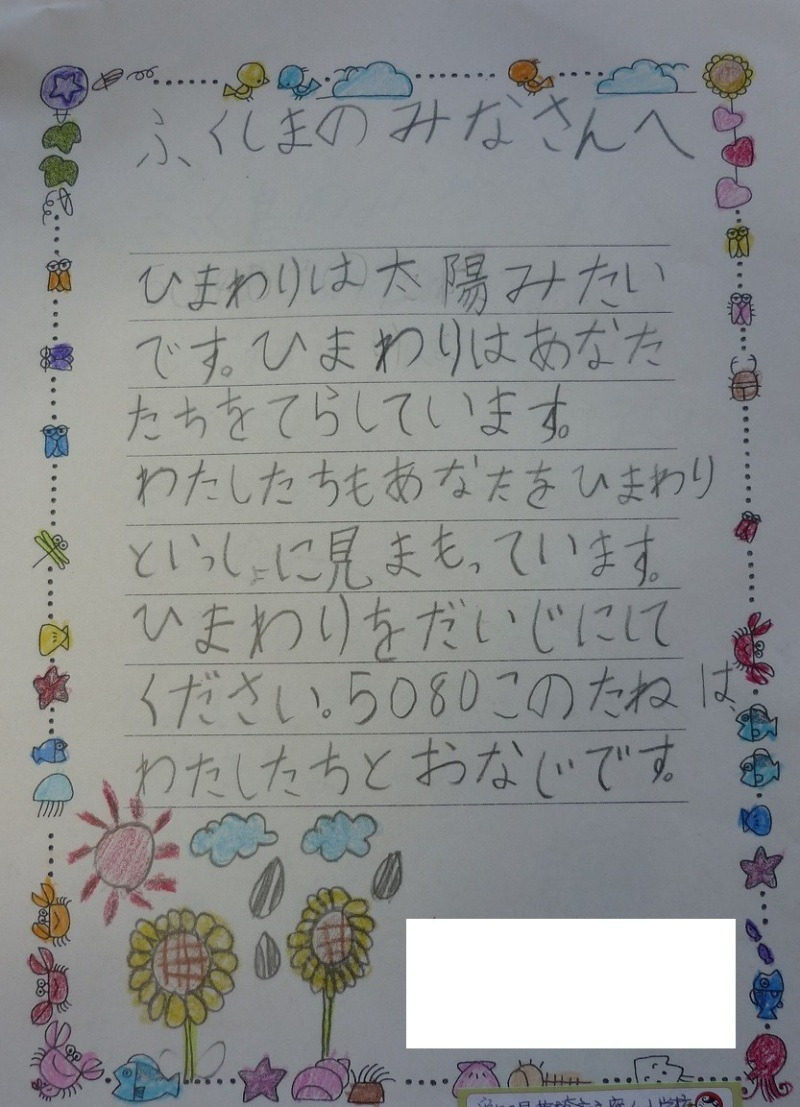 ふくしまのみなさんへ
ひまわりは太陽みたい
です。ひまわりはあなた
たちをてらしています。
わたしたちもあなたをひまわり
といっしょに見まもっています。
ひまわりをだいじにして
ください。5080このたねは、
わたしたちとおなじです。